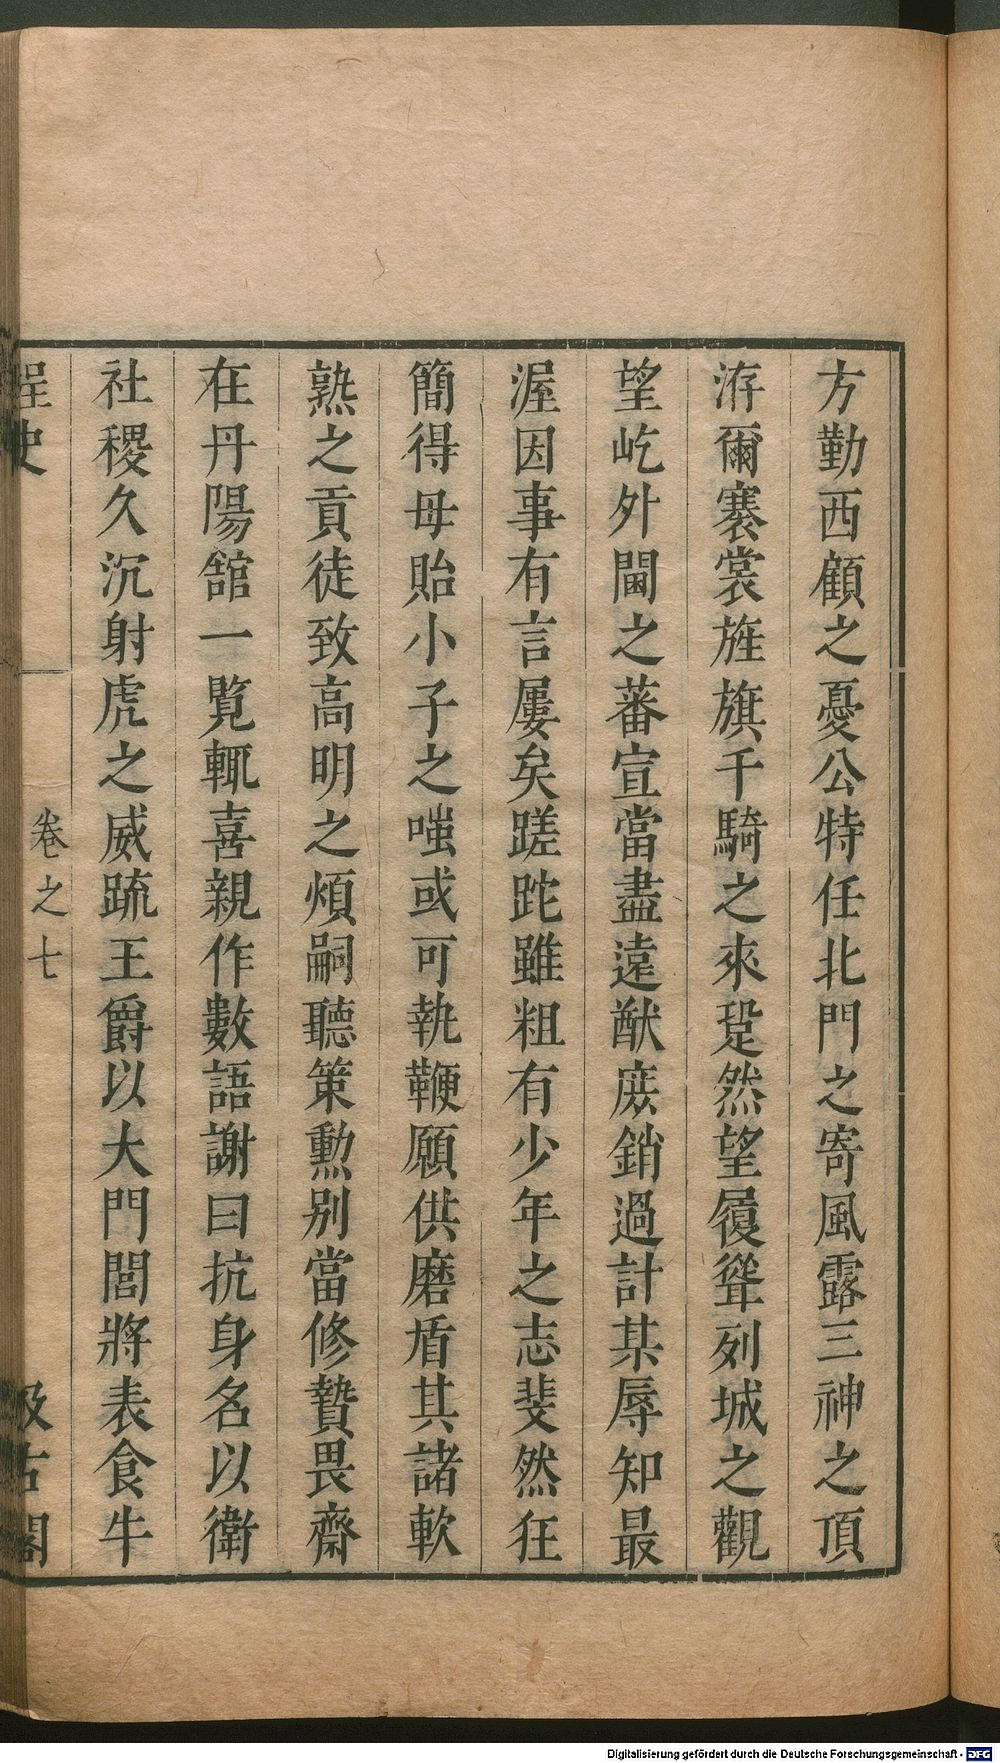 方勤西顧之憂公特任北門之寄風露三神之頂
洊爾褰裳旌旗千騎之來跫然望履聳列城之觀
望屹外閫之蕃宣當盡遠猷庶銷過計某辱知最
渥因事有言屢矣蹉跎雖粗有少年之志斐然狂
簡得毋貽小子之嗤或可執鞭願供磨盾其諸軟
熟之貢徒致高明之煩嗣聽策勲别當修贄畏齋
在丹陽舘一覽輒喜親作數語謝曰抗身名以衛
社稷久沉射虎之威䟽王爵以大門閭將表食牛
桯史
卷之七
汲古閣
Digitalisierung gefördert durch die Deutsche Forschungsgemeinschaft - DFG